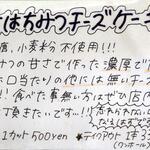 はちみつチーズケーキ
糖、小麦粉不使用!!!
つの甘さで作った濃厚で
口当たりの他には無いチーズ
!!食べた事無い方はぜひ店内
頂きたいです!!!
1カット500yen
★テイクアウト1本
(ワンホール)